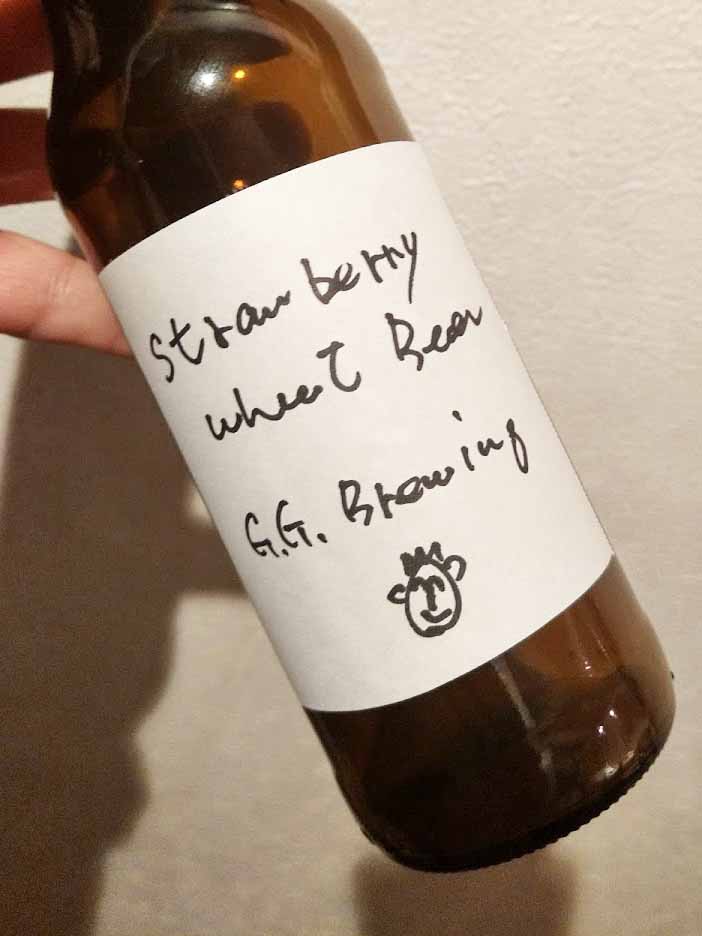 Strawberry
wheat Beer
G.G. Brewing